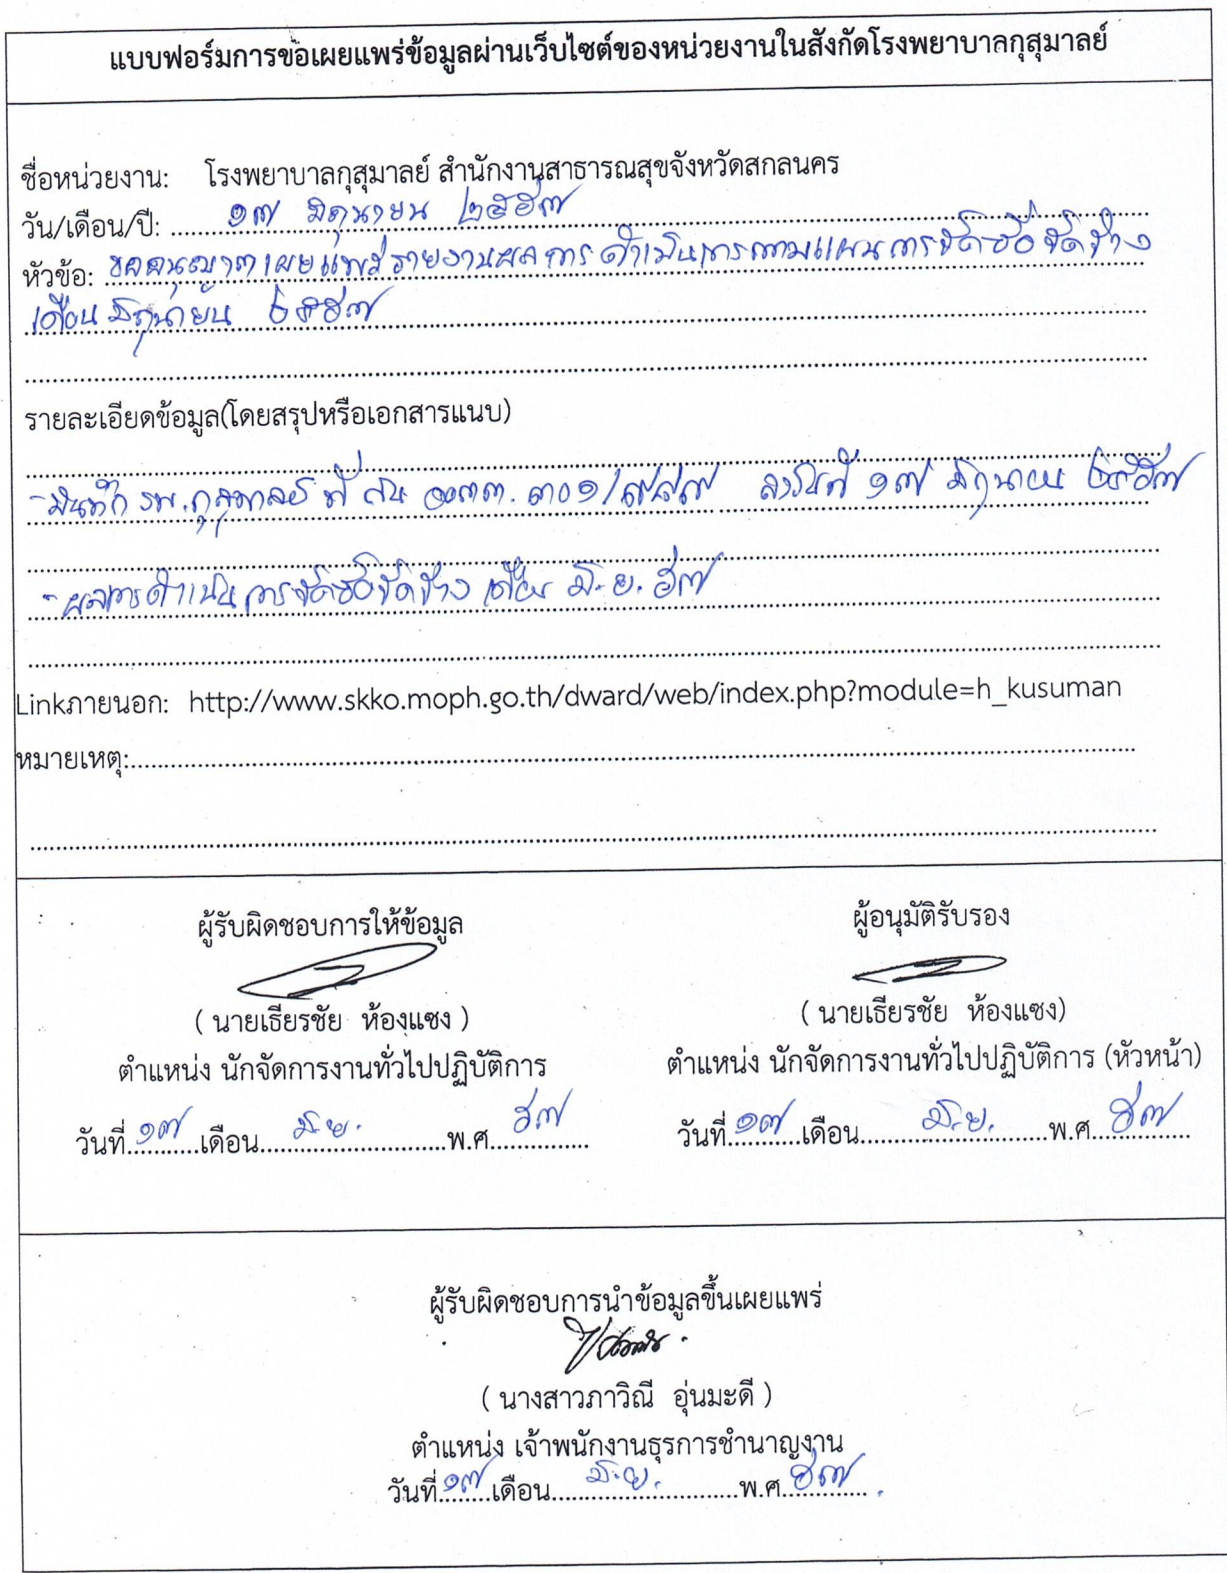 แบบฟอร์มการขอเผยแพร่ข้อมูลผ่านเว็บไซต์ของหน่วยงานในสังกัดโรงพยาบาลกุสุมาลย์
ชื่อหน่วยงาน: โรงพยาบาลกุสุมาลย์ สำนักงานสาธารณสุขจังหวัดสกลนคร
วัน/เดือน/ปี: ๑๗ มิถุนายน ๒๕๖๗
หัวข้อ: ขออนุญาตเผยแพร่รายงานผลการดำเนินการตามแผนการจัดซื้อจัดจ้าง
เดือน มิถุนายน ๒๕๖๗
รายละเอียดข้อมูล(โดยสรุปหรือเอกสารแนบ)
- บันทึก รพ.กุสุมาลย์ ที่ สน ๐๐๓๓.๓๐๑/ ลงวันที่ ๑๗ มิถุนายน ๒๕๖๗
- ผลการดำเนินการจัดซื้อจัดจ้าง เดือน มิ.ย. ๖๗
Linkภายนอก: http://www.skko.moph.go.th/dward/web/index.php?module=h_kusuman
หมายเหตุ:
ผู้รับผิดชอบการให้ข้อมูล
( นายเธียรชัย ห้องแซง )
ตำแหน่ง นักจัดการงานทั่วไปปฏิบัติการ
วันที่ ๑๗ เดือน มิ.ย. พ.ศ. ๖๗
ผู้อนุมัติรับรอง
( นายเธียรชัย ห้องแซง)
ตำแหน่ง นักจัดการงานทั่วไปปฏิบัติการ (หัวหน้า)
วันที่ ๑๗ เดือน มิ.ย. พ.ศ. ๖๗
ผู้รับผิดชอบการนำข้อมูลขึ้นเผยแพร่
( นางสาวภาวิณี อุ่นมะดี )
ตำแหน่ง เจ้าพนักงานธุรการชำนาญงาน
วันที่ ๑๗ เดือน มิ.ย. พ.ศ. ๖๗